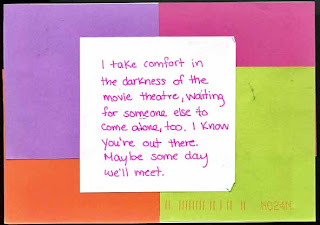 I take comfort in
the darkness of the
movie theatre, waiting
for someone else to
come alone, too. I know
you're out there.
Maybe some day
we'll meet.